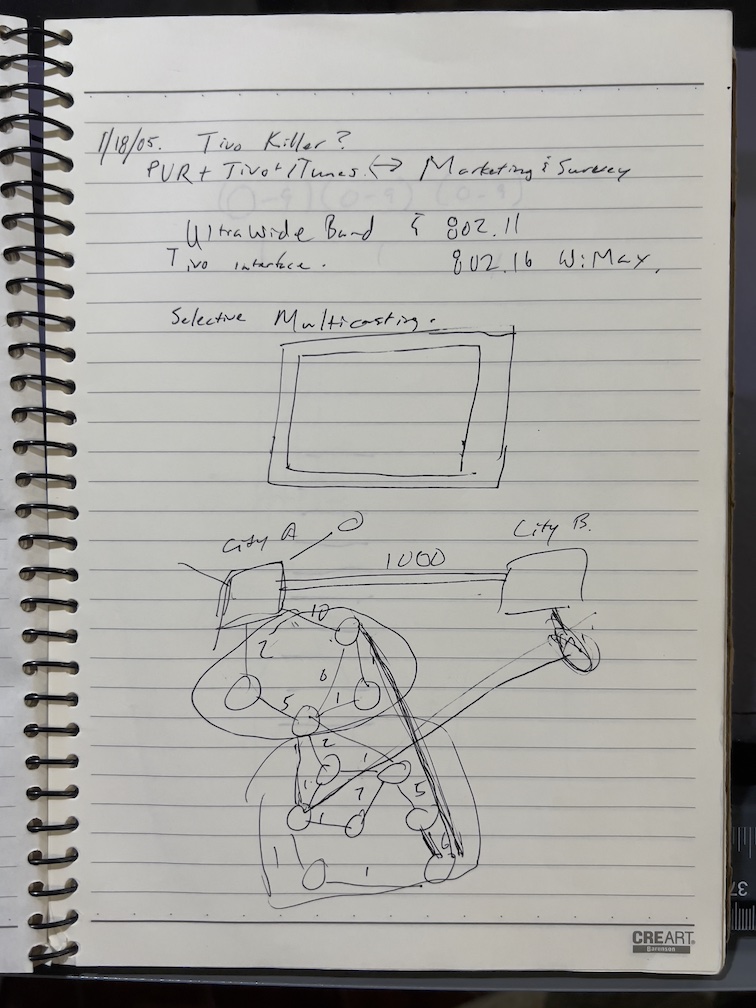 1/18/05. Tivo Killer?
PVR + Tivo + iTunes. <-> Marketing & Survey
(0-9) (0-9) (0-9)
UltraWide Band & 802.11
Tivo interface. 802.16 WiMax.
Selective Multicasting.
City A
City B.
1000
10
2
6
1
5
1
2
1
1
5
1
7
1
1
CREART
37